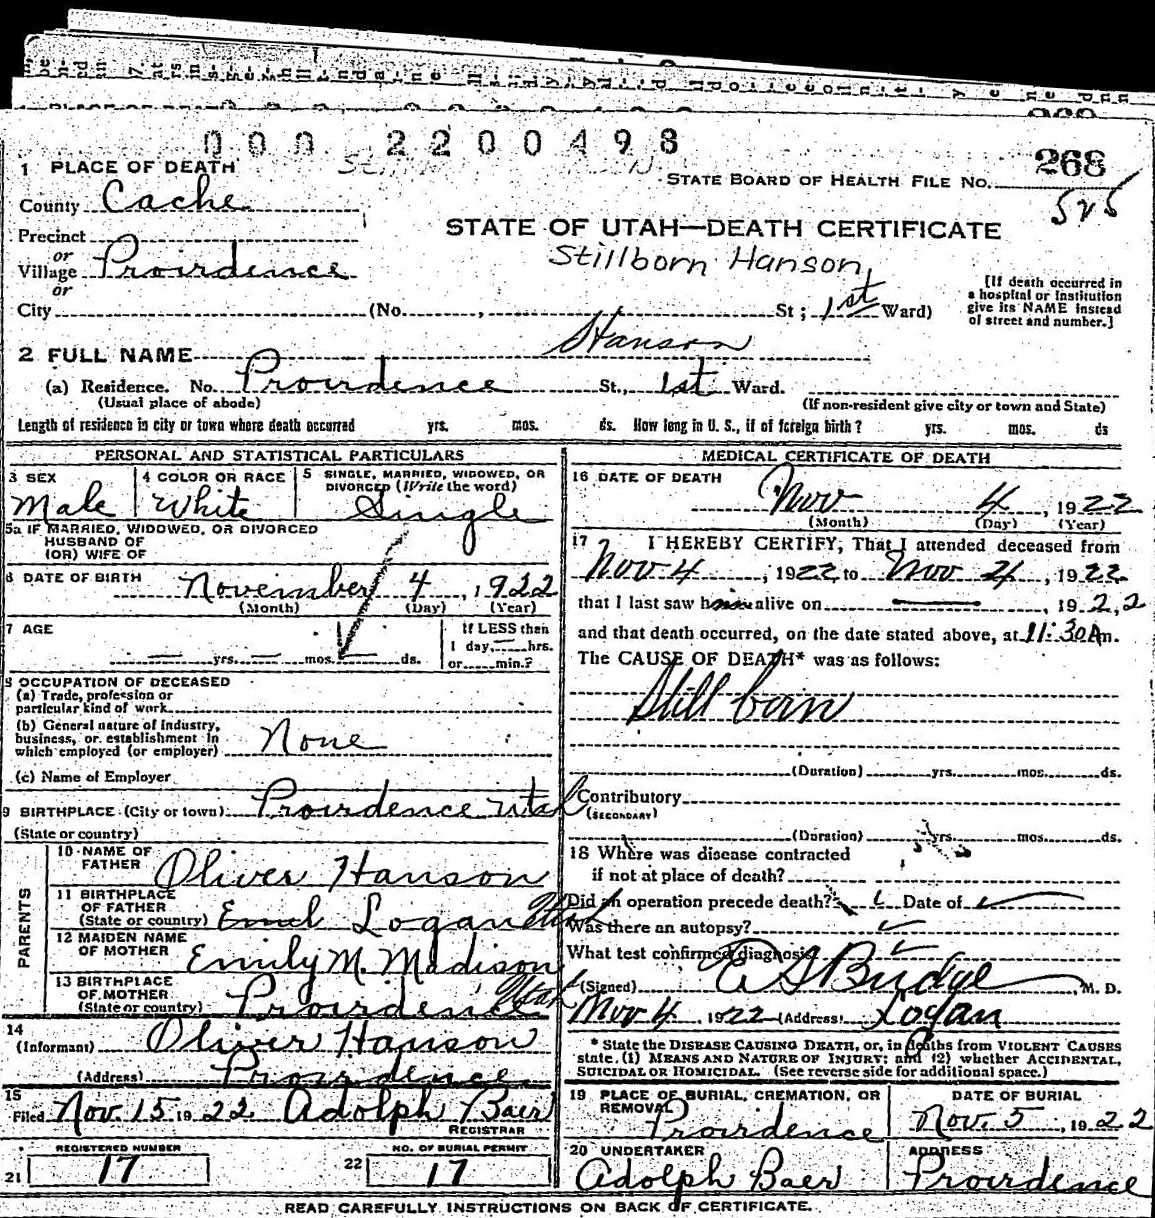 000 2200498
268
1 PLACE OF DEATH
STATE BOARD OF HEALTH FILE No.
525
County Cache
STATE OF UTAH—DEATH CERTIFICATE
Precinct
or
Village Providence
Stillborn Hanson
or
City (No. , St; 1st Ward)
[If death occurred in
a hospital or institution
give its NAME instead
of street and number.]
2 FULL NAME Hanson
(a) Residence. No. Providence St., 1st Ward.
(Usual place of abode) (If non-resident give city or town and State)
Length of residence in city or town where death occurred yrs. mos. ds. How long in U. S., if of foreign birth? yrs. mos. ds
PERSONAL AND STATISTICAL PARTICULARS
3 SEX
Male
4 COLOR OR RACE
White
5 SINGLE, MARRIED, WIDOWED, OR
DIVORCED (Write the word)
Single
5a IF MARRIED, WIDOWED, OR DIVORCED
HUSBAND OF
(OR) WIFE OF
6 DATE OF BIRTH November 4, 1922
(Month) (Day) (Year)
7 AGE
— yrs. — mos. — ds.
If LESS then
1 day, — hrs.
or min.?
8 OCCUPATION OF DECEASED
(a) Trade, profession or
particular kind of work
(b) General nature of industry,
business, or establishment in
which employed (or employer) None
(c) Name of Employer
9 BIRTHPLACE (City or town) Providence Utah
(State or country)
PARENTS
10 NAME OF
FATHER Oliver Hanson
11 BIRTHPLACE
OF FATHER
(State or country) Logan Utah
12 MAIDEN NAME
OF MOTHER Emily M. Madison
13 BIRTHPLACE
OF MOTHER
(State or country) Providence Utah
14
(Informant) Oliver Hanson
(Address) Providence
15
Filed Nov. 15 1922. Adolph Baer
REGISTRAR
REGISTERED NUMBER
21 17
NO. OF BURIAL PERMIT
22 17
MEDICAL CERTIFICATE OF DEATH
16 DATE OF DEATH
Nov 4, 1922
(Month) (Day) (Year)
17 I HEREBY CERTIFY, That I attended deceased from
Nov 4, 1922 to Nov 4, 1922
that I last saw him alive on —, 1922
and that death occurred, on the date stated above, at 11:30 Am.
The CAUSE OF DEATH* was as follows:
Still born
(Duration) yrs. mos. ds.
Contributory
(SECONDARY)
(Duration) yrs. mos. ds.
18 Where was disease contracted
if not at place of death?
Did an operation precede death? Date of
Was there an autopsy?
What test confirmed diagnosis
(Signed) E S Budge, M. D.
Nov 4, 1922 (Address) Logan
* State the DISEASE CAUSING DEATH, or, in deaths from VIOLENT CAUSES
state (1) MEANS AND NATURE OF INJURY; and (2) whether ACCIDENTAL,
SUICIDAL OR HOMICIDAL. (See reverse side for additional space.)
19 PLACE OF BURIAL, CREMATION, OR
REMOVAL
Providence
DATE OF BURIAL
Nov. 5, 1922
20 UNDERTAKER
Adolph Baer
ADDRESS
Providence
READ CAREFULLY INSTRUCTIONS ON BACK OF CERTIFICATE.